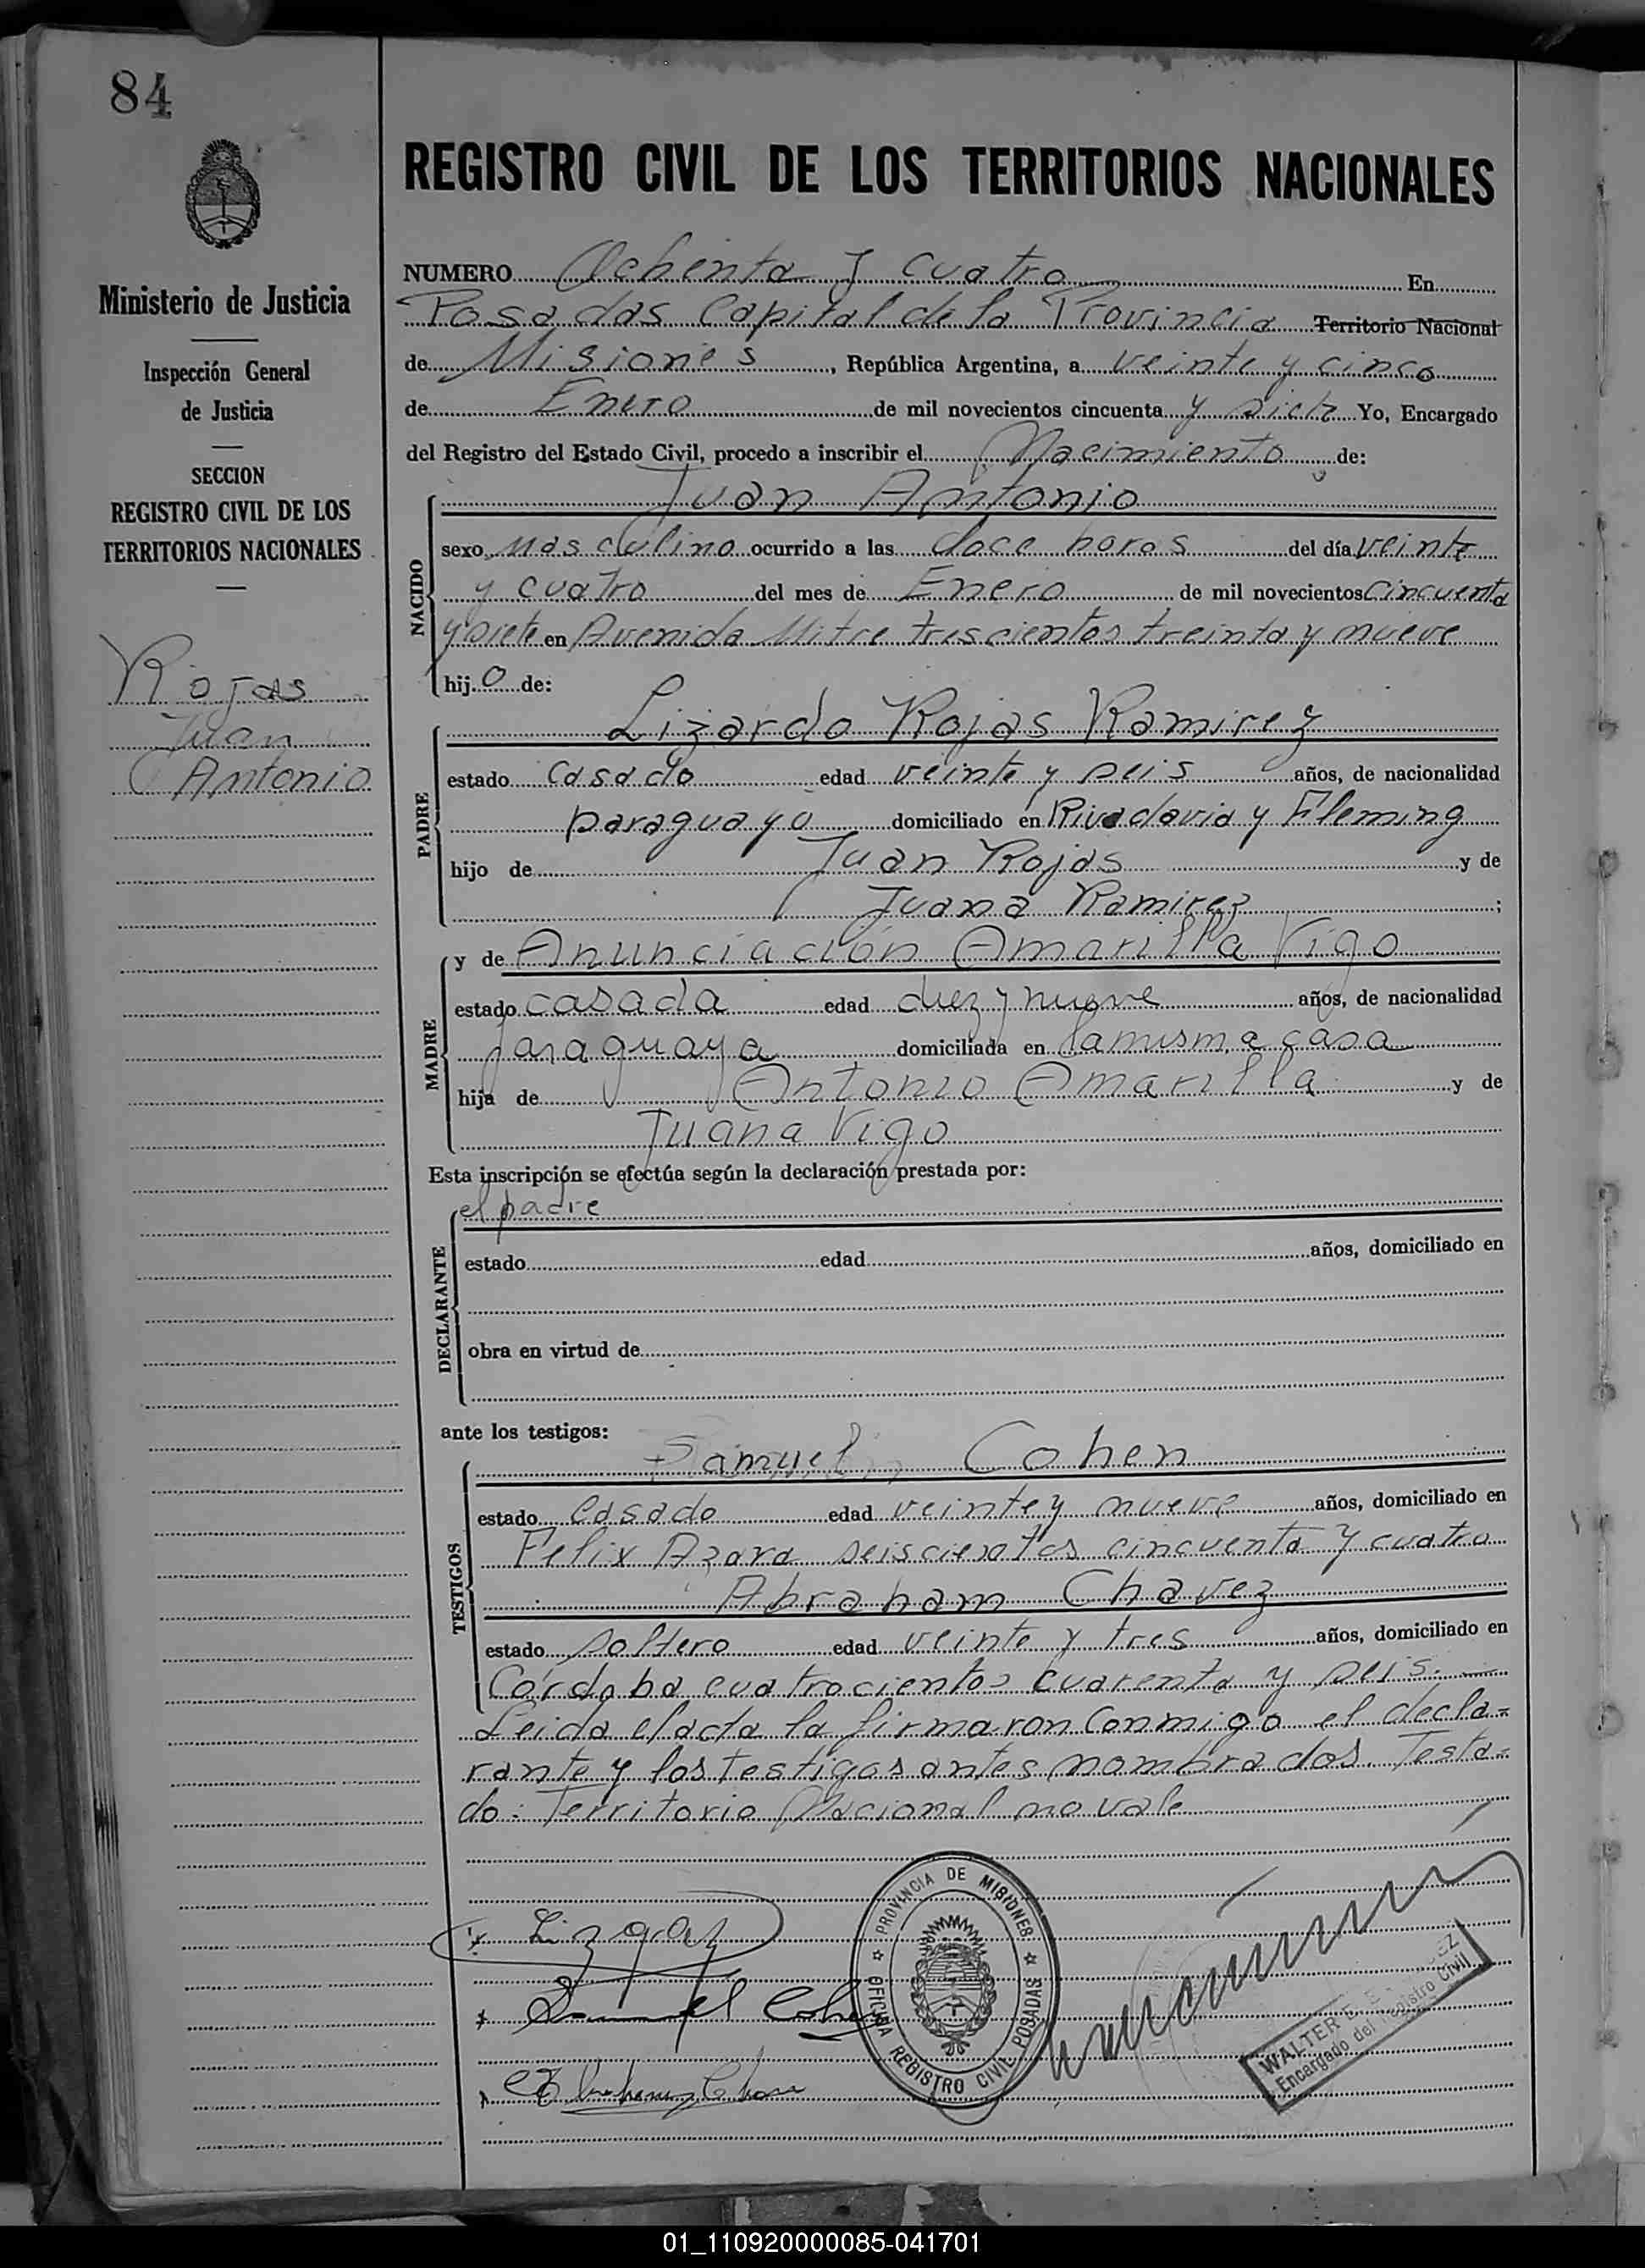 84
Ministerio de Justicia
Inspección General
de Justicia
SECCION
REGISTRO CIVIL DE LOS
TERRITORIOS NACIONALES
Rojas
Juan
Antonio
REGISTRO CIVIL DE LOS TERRITORIOS NACIONALES
NUMERO Ochenta y cuatro En
Posadas Capital de la Provincia Territorio Nacional
de Misiones, República Argentina, a veinte y cinco
de Enero de mil novecientos cincuenta y siete Yo, Encargado
del Registro del Estado Civil, procedo a inscribir el Nacimiento de:
Juan Antonio
NACIDO
sexo masculino ocurrido a las doce horas del día veinte
y cuatro del mes de Enero de mil novecientos cincuenta
y siete en Avenida Mitre trescientos treinta y nueve
hijo de:
Lizardo Rojas Ramirez
PADRE
estado casado edad veinte y seis años, de nacionalidad
paraguayo domiciliado en Rivadavia y Fleming
hijo de Juan Rojas y de
Juana Ramirez;
y de Anunciación Amarilla Vigo
MADRE
estado casada edad diez y nueve años, de nacionalidad
paraguaya domiciliada en la misma casa
hija de Antonio Amarilla y de
Juana Vigo
Esta inscripción se efectúa según la declaración prestada por:
el padre
DECLARANTE
estado edad años, domiciliado en
obra en virtud de
ante los testigos:
Samuel Cohen
TESTIGOS
estado casado edad veinte y nueve años, domiciliado en
Felix Azara seiscientos cincuenta y cuatro
Abraham Chavez
estado soltero edad veinte y tres años, domiciliado en
Córdoba cuatrocientos cuarenta y seis.
Leida el acta la firmaron conmigo el decla=
rante y los testigos antes nombrados. Testa=
do: Territorio Nacional no vale
PROVINCIA DE MISIONES
OFICINA REGISTRO CIVIL POSADAS
Samuel Cohen
WALTER E.
Encargado del Registro Civil
01_110920000085-041701